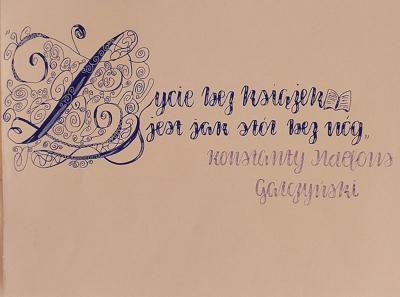 „Życie bez książek
jest jak stół bez nóg„
Konstanty Ildefons
Gałczyński